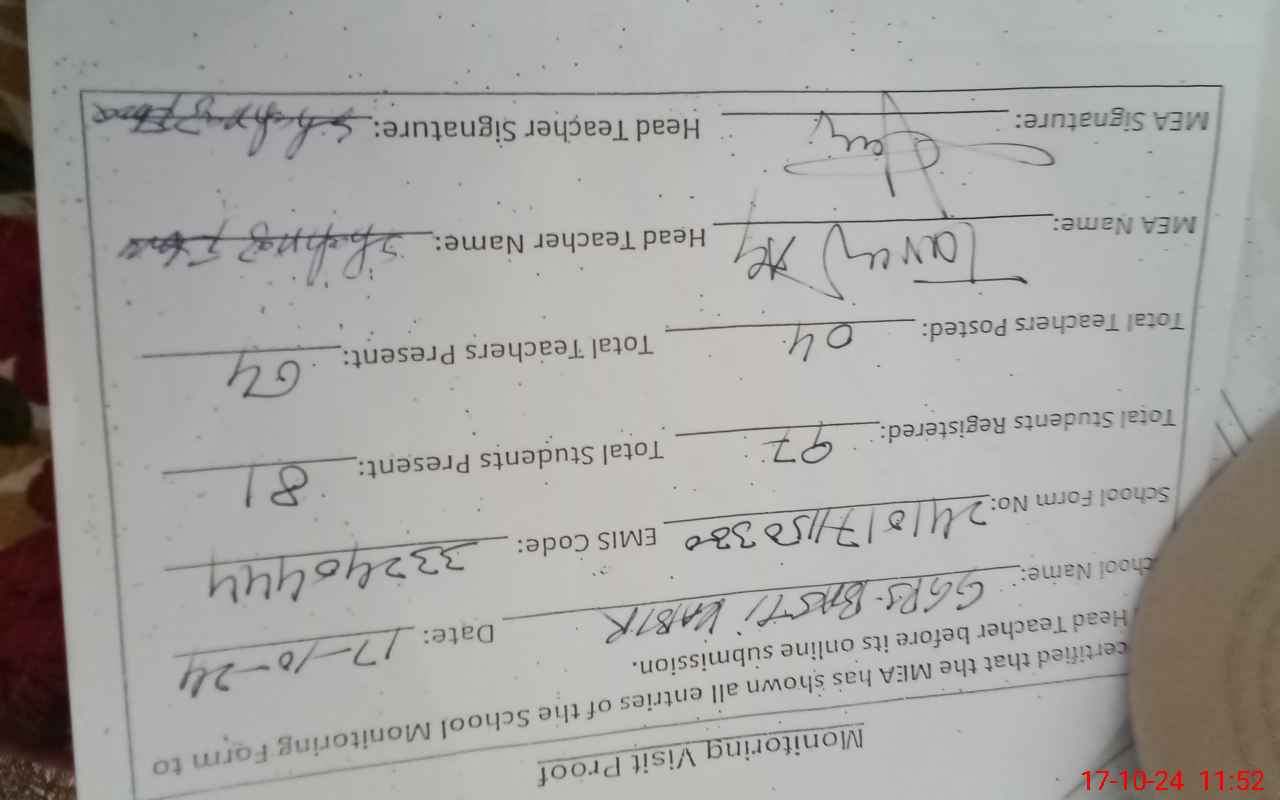 Monitoring Visit Proof
certified that the MEA has shown all entries of the School Monitoring Form to
Head Teacher before its online submission.
chool Name: GGPS. BASTI KABIR Date: 17-10-24
School Form No: 241017150330 EMIS Code: 33240444
Total Students Registered: 97 Total Students Present: 81
Total Teachers Posted: 04 Total Teachers Present: 04
MEA Name: Head Teacher Name:
MEA Signature: Head Teacher Signature:
17-10-24 11:52